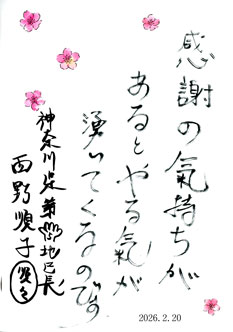 感謝の氣持ちが
あるとやる氣が
湧いてくるのです
神奈川県第 地区長
西野順子
2026.2.20